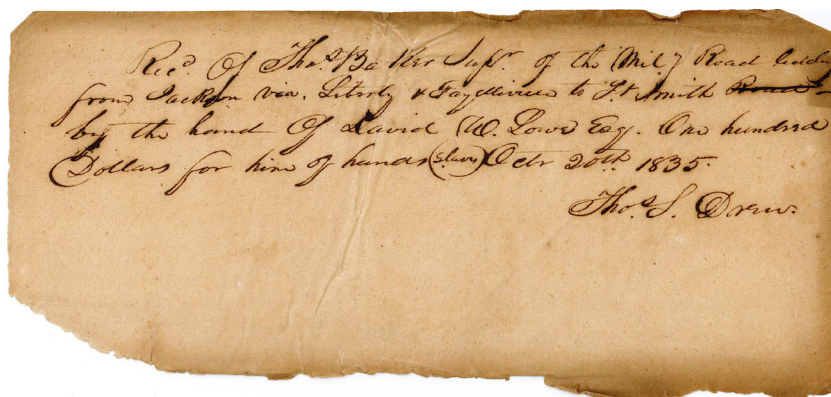 Recd. Of Thos. Baker Supr. of the Mily Road leading
from Jackson via. Liberty & Fayetteville to Ft. Smith Road
by the hand Of David W. Lowe Esq. One hundred
Dollars for hire of hands (slaves) Octr 20th. 1835.
Thos. S. Drew.